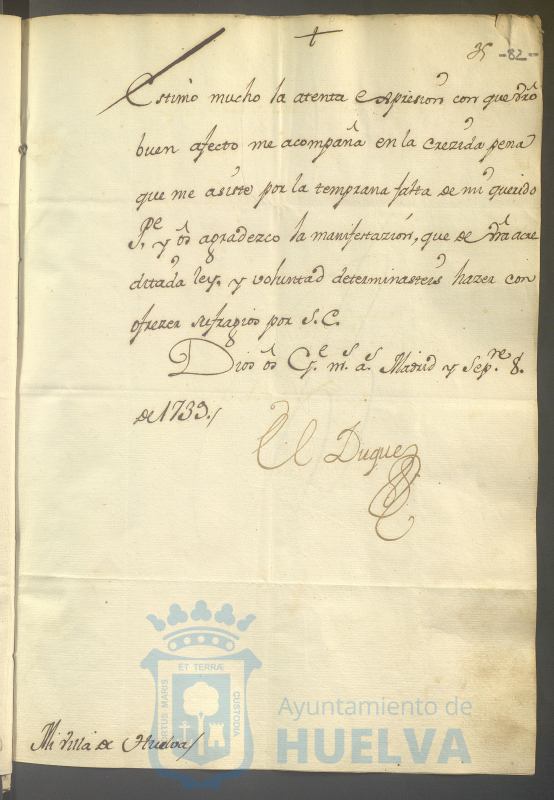 †
35 -82-
Estimo mucho la atenta expresion con que vrõ
buen afecto me acompaña en la crezida pena
que me asiste por la temprana falta de mi querido
P.e y os agradezco la manifestazion, que de vrã acre
ditada ley, y voluntad determinasteis hazer con
ofrezer sufragios por S.E.
Dios os G.e m.s a.s Madrid y Sep.re 8.
de 1733./
El Duque
Mi villa de Huelva/
PORTUS MARIS ET TERRÆ CUSTODIA
Ayuntamiento de
HUELVA